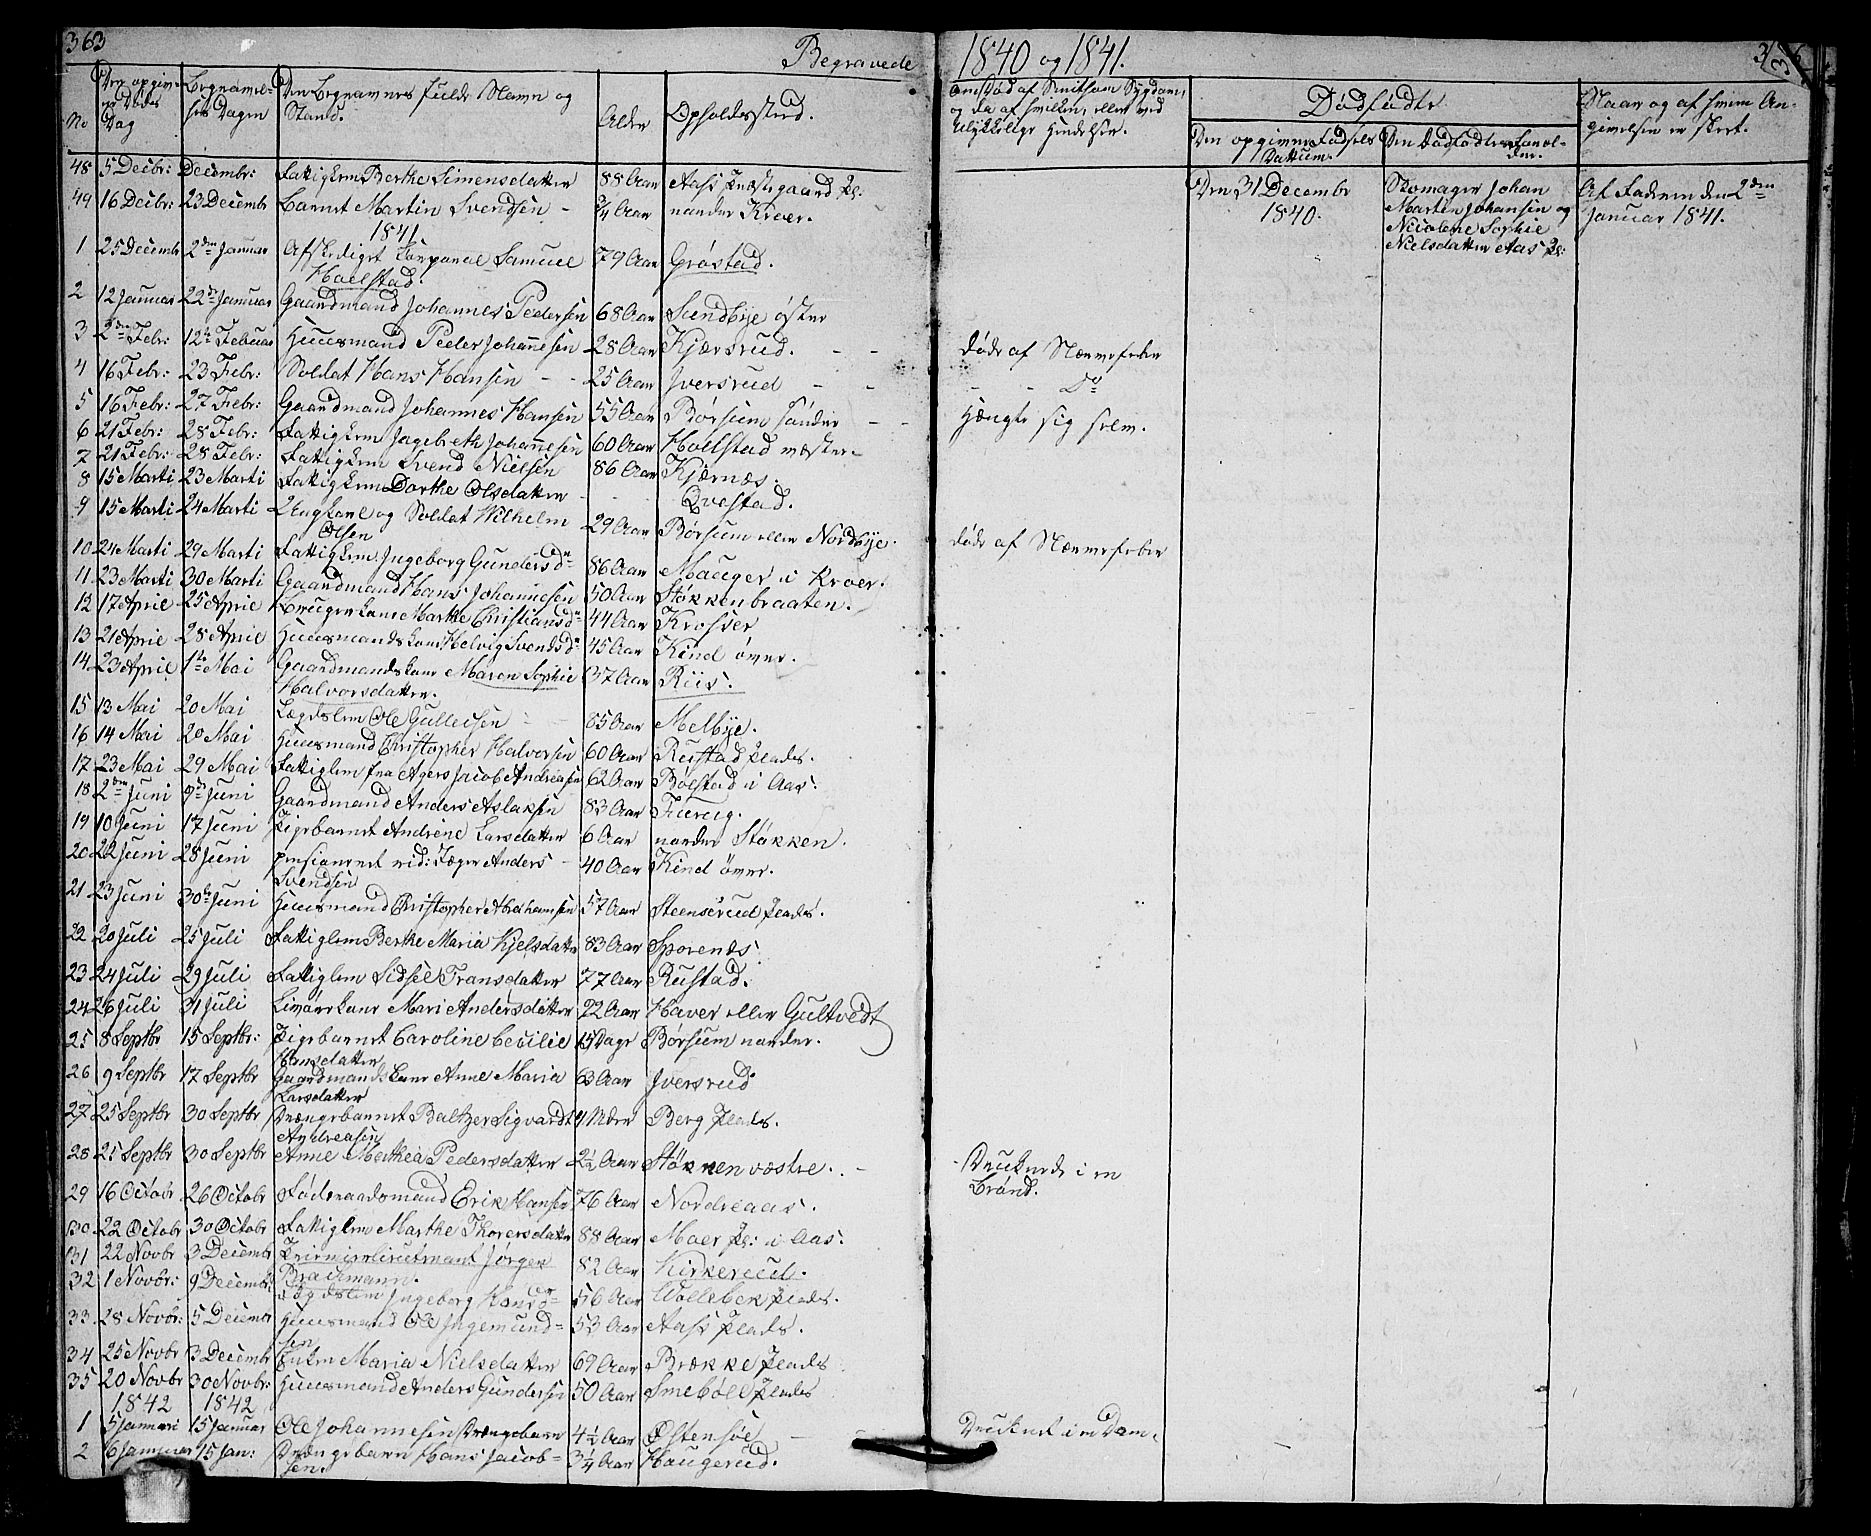 363
Begravede
1840 og 1841.
No
Den opgivne Døds Dag
Begravelses Dagen
Den Begravnes fulde Navn og Stand.
Alder
Opholdssted.
Omdød af Smitsom Sygdom,
og da af hvilken, eller ved
Ulykkelige Hændelser.
Dødfødte
Den opgivne Fødsels Dattum.
Den Dødfødtes Forældre.
Naar og af hvem Angivelsen er skeet.
48 5 Decbr: Decembr: Fattiglem Berthe Simensdatter 88 Aar Aass Præstegaard Pl:
49 16 Decbr: 23 Decembr Barnet Martin Svendsen - ¾ Aar nordre Kroer.
Den 31 Decembr 1840.
Skomager Johan
Martin Johansen og
Nicolene Sophie
Nielsdatter Aas Pl:
Af Faderen den 2den
Januar 1841.
1841
1 25 Decembr 2den Januar Afskediget Corporal Samuel 79 Aar Grøstad.
Holstad.
2 12 Januar 22de Januar Gaardmand Johannes Pedersen 68 Aar Sundbye øster
3 2den Febr: 12te Februar Huusmand Peder Johannesen 28 Aar Kjærsrud. - - døde af Nærvefeber
4 16 Febr: 23 Febr: Soldat Hans Hansen - - 25 Aar Iversrud - - - - Do
5 16 Febr: 27 Febr: Gaardmand Johannes Hansen 55 Aar Børsum søndre - - Hængte sig selv.
6 21 Febr: 28 Febr: Fattiglem Ingebreth Johannesen 60 Aar Holstad væster-
7 21 Febr: 28 Febr: Fattiglem Svend Nielsen 86 Aar Kjærnæs.
8 15 Marti 23 Marti Fattiglem Dorthe Olsdatter - - Qvestad.
9 15 Marti 24 Marti Ungkarl og Soldat Wilhelm 29 Aar Børsum eller Nordbye. døde af Nærvefeber
Olsen
10 24 Marti 29 Marti Fattiglem Ingeborg Gundersdr 86 Aar Mauger i Kroer.
11 23 Marti 30 Marti Gaardmand Hans Johannesen 50 Aar Støkkenbraaten.
12 17 April 25 April Brugerkone Marthe Christiansdr 44 Aar Krosser
13 21 April 28 April Huusmandskone Helvig Svendsdr 45 Aar Kind øvre.
14 23 April 1te Mai Gaardmandskone Maren Sophie 37 Aar Riis.
Halvorsdatter.
15 13 Mai 20 Mai Lægdslem Ole Gulleisen - - 85 Aar Melbye.
16 14 Mai 20 Mai Huusmand Christopher Halvorsen 60 Aar Rustad Plads.
17 23 Mai 29 Mai Fattiglem fra Agers Jacob Andreasen 62 Aar Bølstad i Aas.
18 2den Juni 9de Juni Gaardmand Anders Aslaksen 83 Aar Furug.
19 10 Juni 17 Juni Pigebarnet Andrene Larsdatter 6 Aar nordre Støkken.
20 22 Juni 28 Juni pensioneret rid: Jæger Anders - 40 Aar Kind øvre.
Svendsen
21 23 Juni 30te Juni Huusmand Christopher Abrahamsen 57 Aar Steenserud Plads.
22 20 Juli 25 Juli Fattiglem Berthe Maria Kjelsdatter 83 Aar Sporenes.
23 24 Juli 29 Juli Fattiglem Sidsel Fransdatter 77 Aar Rustad.
24 26 Juli 31 Juli Mari Andersdatter 72 Aar Haver eller Gultvedt
25 8 Septbr 15 Septbr: Pigebarnet Caroline Cecilie 15 Dage Børsum nordre.
Hansdatter
26 9 Septbr 17 Septbr Gaardmandskone Anne Maria 63 Aar Iversrud
Larsdatter
27 25 Septbr 30 Septbr Drængebarnet Baltzer Sigvardt 4 Mdr Berg Plads.
Andreasen
28 25 Septbr 30 Septbr Anne Mathea Pedersdatter 2½ Aar Støkken væstre. - - Druknede i en
Brønd.
29 16 Octobr 26 Octobr Føderaadsmand Erik Hansen 76 Aar Nordreaas.
30 22 Octobr 30 Octobr Fattiglem Marthe Thorersdatter 88 Aar Moer Pl: i Aas.
31 22 Novbr 3 Decembr Premierlieutnant Jørgen 82 Aar Kirkerud.
Brackmann.
32 1 Novbr: 9 Decembr: Lægdslem Ingeborg 56 Aar Wollebek Plads.
33 28 Novbr: 5 Decembr Huusmand Ole Ingemund= 53 Aar Aass Plads.
sen
34 25 Novbr 3 Decembr Enken Maria Nielsdatter 69 Aar Brække Plads
35 20 Novbr 30 Novbr: Huusmand Anders Gundersen 50 Aar Smebøl Plads
1842 1842
1 5 Januari 15 Januar Ole Johannesen Drængebarn 4½ Aar Østensøe - Druknet i en Dam.
2 6 Januar 15 Jan: Drængebarn Hans Jacob= 3¼ Aar Haugerud.
sen.